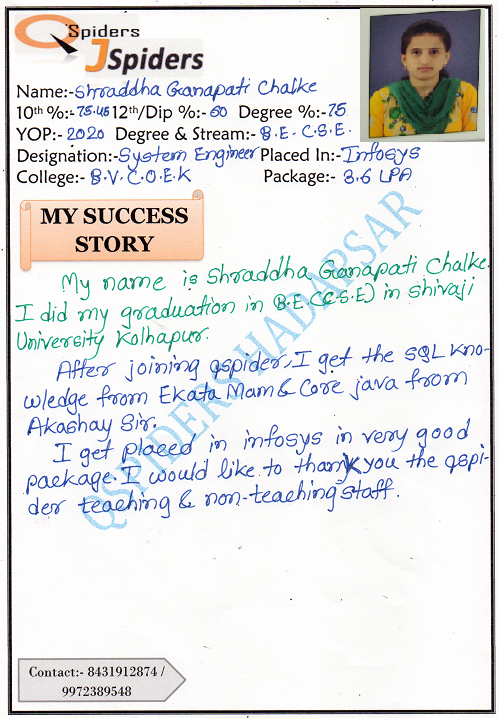 Spiders
JSpiders
Name:- Shraddha Ganapati Chalke
10th %:- 75.45 12th/Dip %:- 60 Degree %:- 75
YOP:- 2020 Degree & Stream:- B.E. C.S.E.
Designation:- System Engineer Placed In:- Infosys
College:- B.V.C.O.E.K Package:- 3.6 LPA
MY SUCCESS
STORY
My name is Shraddha Ganapati Chalke.
I did my graduation in B.E.(C.S.E) in shivaji
University Kolhapur.
After joining qspider, I get the SQL kno-
wledge from Ekata Mam & Core java from
Akashay Sir.
I get placed in infosys in very good
package. I would like to thank you the qspi-
der teaching & non-teaching staff.
QSPIDERS HADAPSAR
Contact:- 8431912874 /
9972389548